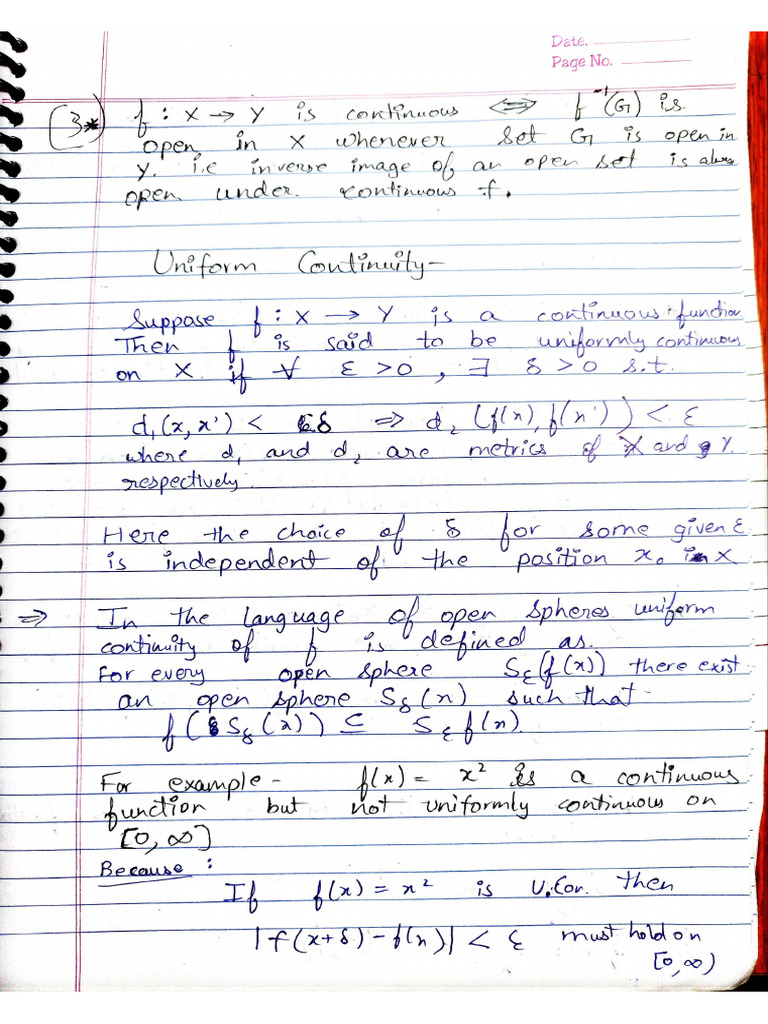 Date.
Page No.
3* f : X → Y is continuous ⇔ f⁻¹(G) is
open in X whenever set G is open in
Y. i.e inverse image of an open set is
open under continuous f.
Uniform Continuity-
Suppose f : X → Y is a continuous function
Then f is said to be uniformly continuous
on X if ∀ ε > 0 , ∃ δ > 0 s.t.
d₁(x, x') < δ ⇒ d₂ (f(x), f(x')) < ε
where d₁ and d₂ are metrics of X and Y
respectively.
Here the choice of δ for some given ε
is independent of the position x₀ in X
⇒ In the language of open spheres uniform
continuity of f is defined as.
For every open sphere Sε(f(x)) there exist
an open sphere Sδ(x) such that
f(Sδ(x)) ⊆ Sε f(x).
For example - f(x) = x² is a continuous
function but not uniformly continuous on
[0, ∞]
Because :
If f(x) = x² is U.Con. then
|f(x+δ) - f(x)| < ε must hold on
[0, ∞)